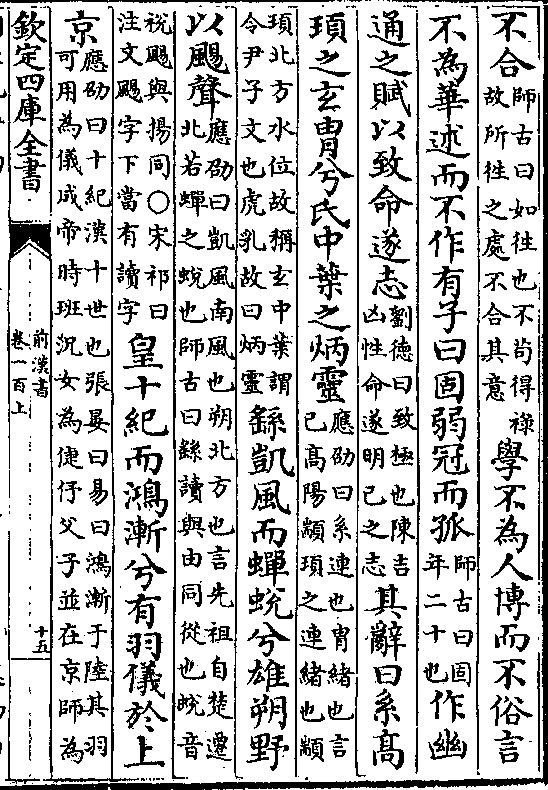 不合師古曰如往也不苟得祿故所往之處不合其意學不為人博而不俗言
不為華述而不作有子曰固弱冠而孤師古曰固年二十也作幽
通之賦以致命遂志劉德曰致極也陳吉凶性命遂明己之志其辭曰系高
頊之玄胄兮氏中葉之炳靈應劭曰系連也胄緒也言己高陽顓頊之連緒也顓
頊北方水位故稱玄中葉謂令尹子文也虎乳故曰炳靈繇凱風而蟬蛻兮雄朔野
以颺聲應劭曰凱風南風也朔北方也言先祖自楚遷北若蟬之蛻也師古曰繇讀與由同從也蛻音
稅颺與揚同○宋祁曰注文颺字下當有讀字皇十紀而鴻漸兮有羽儀於上
京應劭曰十紀漢十世也張晏曰易曰鴻漸于陸其羽可用為儀成帝時班況女為倢伃父子並在京師為
欽定四庫全書
前漢書
卷一百上
十五